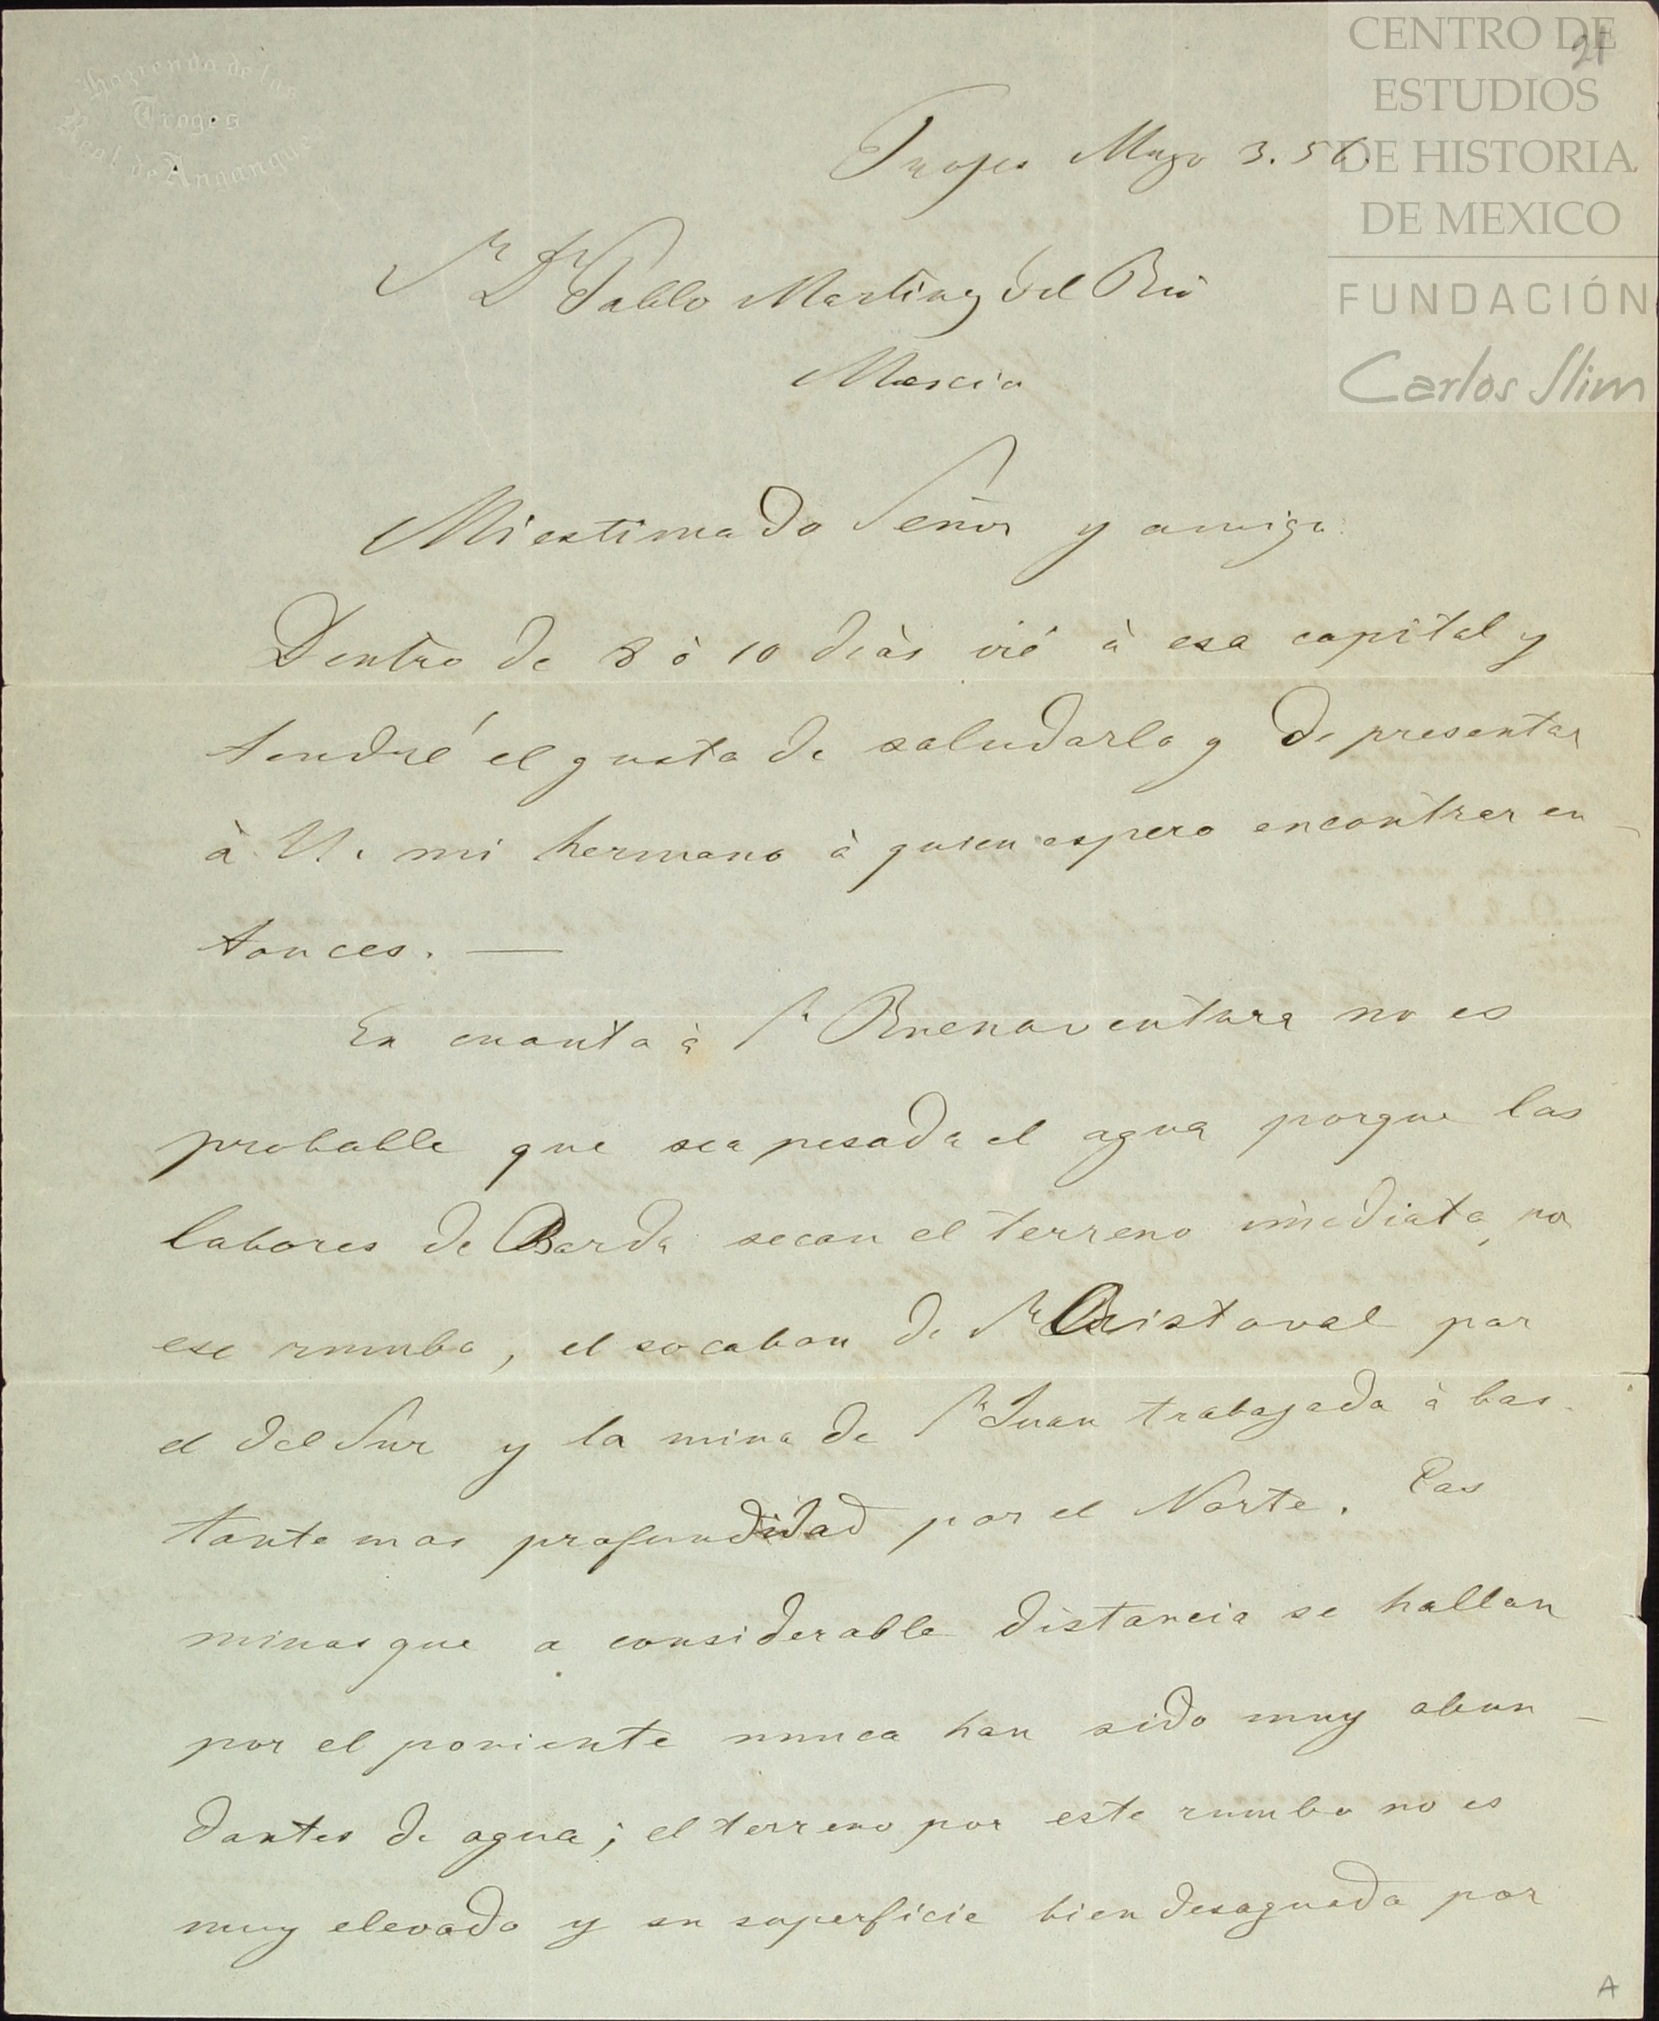 Hazienda de las
Troges
Real de Angangueo
CENTRO DE
ESTUDIOS
DE HISTORIA
DE MEXICO
FUNDACIÓN
Carlos Slim
21
Trojes Mayo 3. 56.
Sr Dn Pablo Martinez del Rio
Mexico
Mi estimado Señor y amigo
Dentro de 8 ò 10 diàs iré à esa capital y
tendré el gusto de saludarlo y de presentar
à V. mi hermano à quien espero encontrar en-
tonces. —
En cuanto à Sn Buenaventura no es
probable que sea pesada el agua porque las
labores de Barda secan el terreno imediato, por
ese rumbo, el socabon de Sn Cristoval por
el del Sur y la mina de Sn Juan trabajada à bas-
tante mas profundidad por el Norte. Las
minas que a considerable distancia se hallan
por el poniente nunca han sido muy abun-
dantes de agua; el terreno por este rumbo no es
muy elevado y su superficie bien desaguada por
A